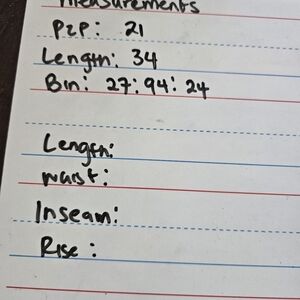 Measurements
P2P: 21
Length: 34
Bin: 27:94:24
Length:
Waist:
Inseam:
Rise: